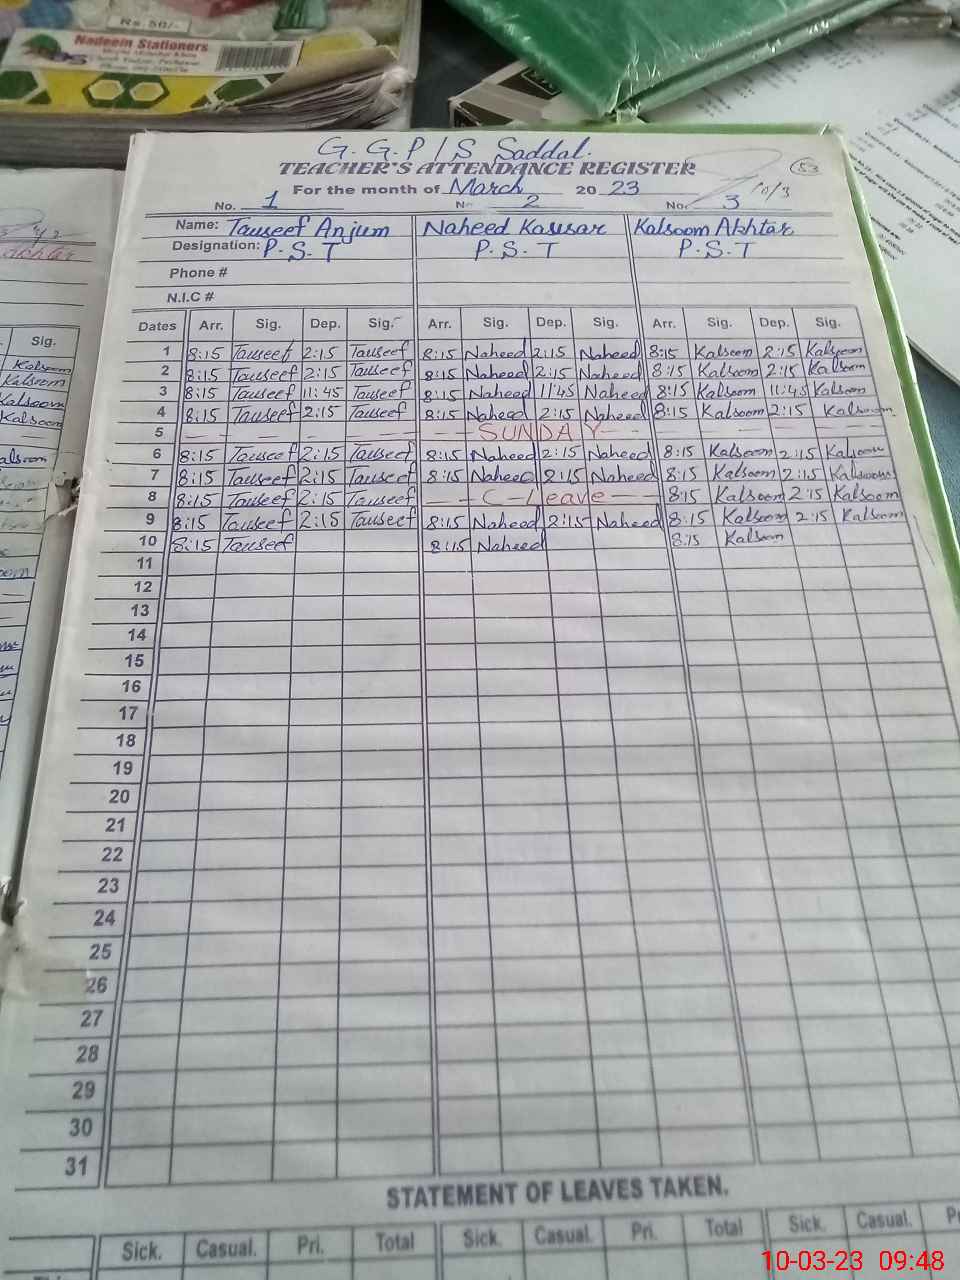 Rs. 50/-
Nadeem Stationers
G.G.P/S Saddal.
TEACHER'S ATTENDANCE REGISTER
53
For the month of March 2023
10/3
No. 1 No. 2 No. 3
Name: Tauseef Anjum Naheed Kausar Kalsoom Akhtar
Designation: P.S.T P.S.T P.S.T
Phone #
N.I.C #
Dates Arr. Sig. Dep. Sig. Arr. Sig. Dep. Sig. Arr. Sig. Dep. Sig.
1 8:15 Tauseef 2:15 Tauseef 8:15 Naheed 2:15 Naheed 8:15 Kalsoom 2:15 Kalsoom
2 8:15 Tauseef 2:15 Tauseef 8:15 Naheed 2:15 Naheed 8:15 Kalsoom 2:15 Kalsoom
3 8:15 Tauseef 11:45 Tauseef 8:15 Naheed 11:45 Naheed 8:15 Kalsoom 11:45 Kalsoom
4 8:15 Tauseef 2:15 Tauseef 8:15 Naheed 2:15 Naheed 8:15 Kalsoom 2:15 Kalsoom
5 SUNDAY
6 8:15 Tauseef 2:15 Tauseef 8:15 Naheed 2:15 Naheed 8:15 Kalsoom 2:15 Kalsoom
7 8:15 Tauseef 2:15 Tauseef 8:15 Naheed 2:15 Naheed 8:15 Kalsoom 2:15 Kalsoom
8 8:15 Tauseef 2:15 Tauseef C-Leave 8:15 Kalsoom 2:15 Kalsoom
9 8:15 Tauseef 2:15 Tauseef 8:15 Naheed 2:15 Naheed 8:15 Kalsoom 2:15 Kalsoom
10 8:15 Tauseef 8:15 Naheed 8:15 Kalsoom
11
12
13
14
15
16
17
18
19
20
21
22
23
24
25
26
27
28
29
30
31
STATEMENT OF LEAVES TAKEN.
Sick. Casual. Pri. Total Sick. Casual. Pri. Total Sick. Casual.
Akhtar
Sig.
Kalsoom
Kalsoom
Kalsoom
Kalsoom
10-03-23 09:48